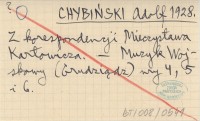 ?
CHYBIŃSKI Adolf 1928.
Z korespondencji Mieczysława
Karłowicza. — Muzyk Woj-
skowy (Grudziądz) nry 4, 5
i 6.